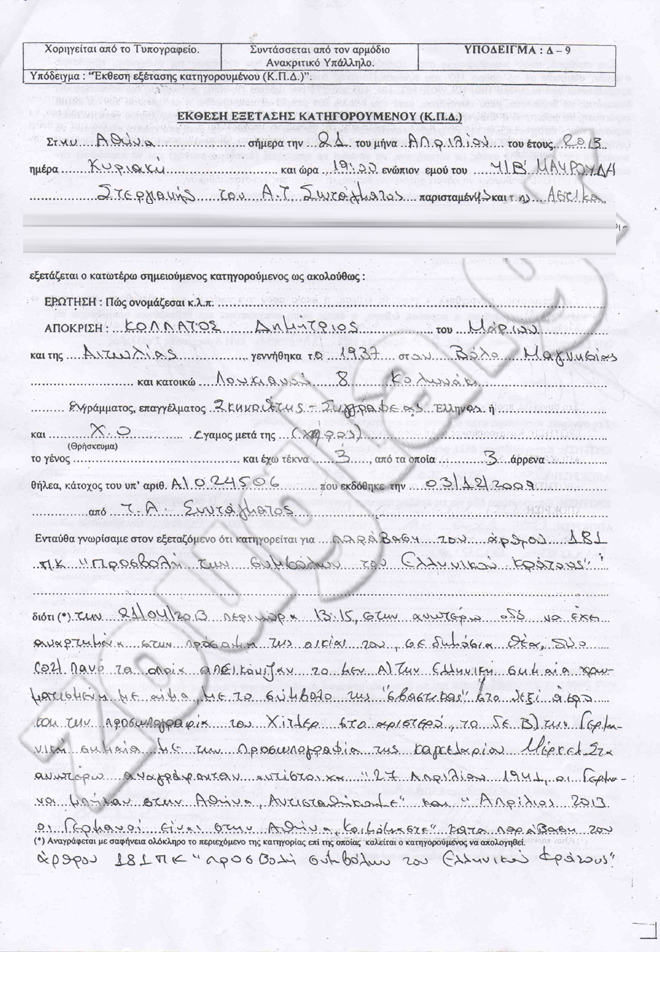 Χορηγείται από το Τυπογραφείο.
Συντάσσεται από τον αρμόδιο Ανακριτικό Υπάλληλο.
ΥΠΟΔΕΙΓΜΑ : Δ – 9
Υπόδειγμα : "Έκθεση εξέτασης κατηγορουμένου (Κ.Π.Δ.)".
ΕΚΘΕΣΗ ΕΞΕΤΑΣΗΣ ΚΑΤΗΓΟΡΟΥΜΕΝΟΥ (Κ.Π.Δ.)
Στην Αθήνα σήμερα την 21 του μήνα Απριλίου του έτους 2013
ημέρα Κυριακή και ώρα 19:00 ενώπιον εμού του Υ/Β' ΜΑΥΡΟΥΔΗ
Στεργιανής του Α.Τ Συντάγματος παρισταμένης και της Αστ/κα
εξετάζεται ο κατωτέρω σημειούμενος κατηγορούμενος ως ακολούθως :
ΕΡΩΤΗΣΗ : Πώς ονομάζεσαι κ.λ.π.
ΑΠΟΚΡΙΣΗ : ΚΟΛΛΑΤΟΣ Δημήτριος του Μάριου
και της Αιτωλίας γεννήθηκα το 1937 στον Βόλο Μαγνησίας
και κατοικώ Λουκιανού 8 Κολωνάκι
Εγγράμματος, επαγγέλματος Σκηνοθέτης - Συγγραφέας Έλληνας ή
και Χ.Ο Έγαμος μετά της (χήρος)
(Θρήσκευμα)
το γένος και έχω τέκνα 3, από τα οποία 3 άρρενα
θήλεα, κάτοχος του υπ' αριθ. ΑΙ 024506 που εκδόθηκε την 03/12/2009
από Τ.Α. Συντάγματος
Ενταύθα γνωρίσαμε στον εξεταζόμενο ότι κατηγορείται για παράβαση του άρθρου 181
Π.Κ "Προσβολή των συμβόλων του Ελληνικού Κράτους"
διότι (*) την 21/04/2013 περί ώρα 13:15, στην ανωτέρω οδό να έχει
αναρτημένα στην πρόσοψη της οικίας του, σε δημόσια θέα, δύο
(02) πανό τα οποία απεικόνιζαν το μεν Α) την Ελληνική σημαία χρω-
ματισμένη με αίμα, με το σύμβολο της "σβαστικας" στο δεξί άκρο
του την προσωπογραφία του Χίτλερ στο αριστερό, το δε Β) την Γερμα-
νική σημαία με την προσωπογραφία της καγκελαρίου Μέρκελ. Στα
ανωτέρω αναγράφονταν αντίστοιχα "27 Απριλίου 1941, οι Γερμα-
νοί μπήκαν στην Αθήνα, Αντισταθήκαμε" και "Απρίλιος 2013
οι Γερμανοί είναι στην Αθήνα, Κοιμόμαστε" κατά παράβαση του
(*) Αναγράφεται με σαφήνεια ολόκληρο το περιεχόμενο της κατηγορίας επί της οποίας καλείται ο κατηγορούμενος να απολογηθεί.
άρθρου 181 ΠΚ "προσβολή συμβόλων του Ελληνικού Κράτους".
zougla.gr